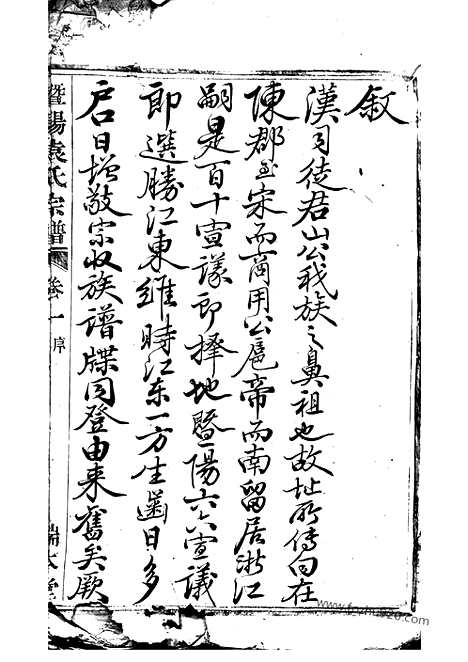 敘
漢司徒君山公我族之鼻祖也故址所傳向在
陳郡至宋而商用公扈帝而南留居浙江
嗣是百十宣議郎擇地暨陽六六宣議
郎選勝江東維時江东一方生齒日多
户口日增敬宗收族譜牒因登由来舊矣厥
暨陽袁氏宗譜
卷一
序